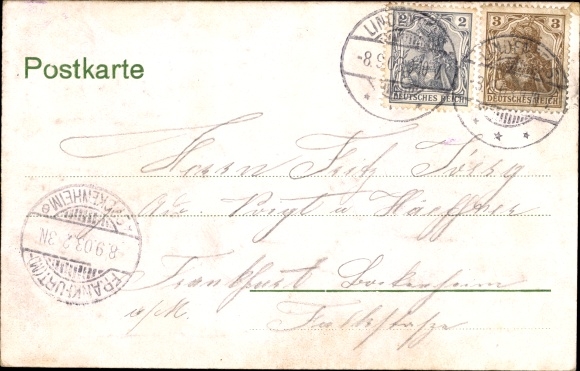 Postkarte
2 2
DEUTSCHES REICH
3 3
DEUTSCHES REICH
LINDEN
-8.9.0
LINDEN
Herrn Fritz
Adr. Voigt u Haeffner
Frankfurt Bockenheim
a/M.
Falkstraße
FRANKFURT (M)-
BOCKENHEIM
-8.9.03. 2-3N.